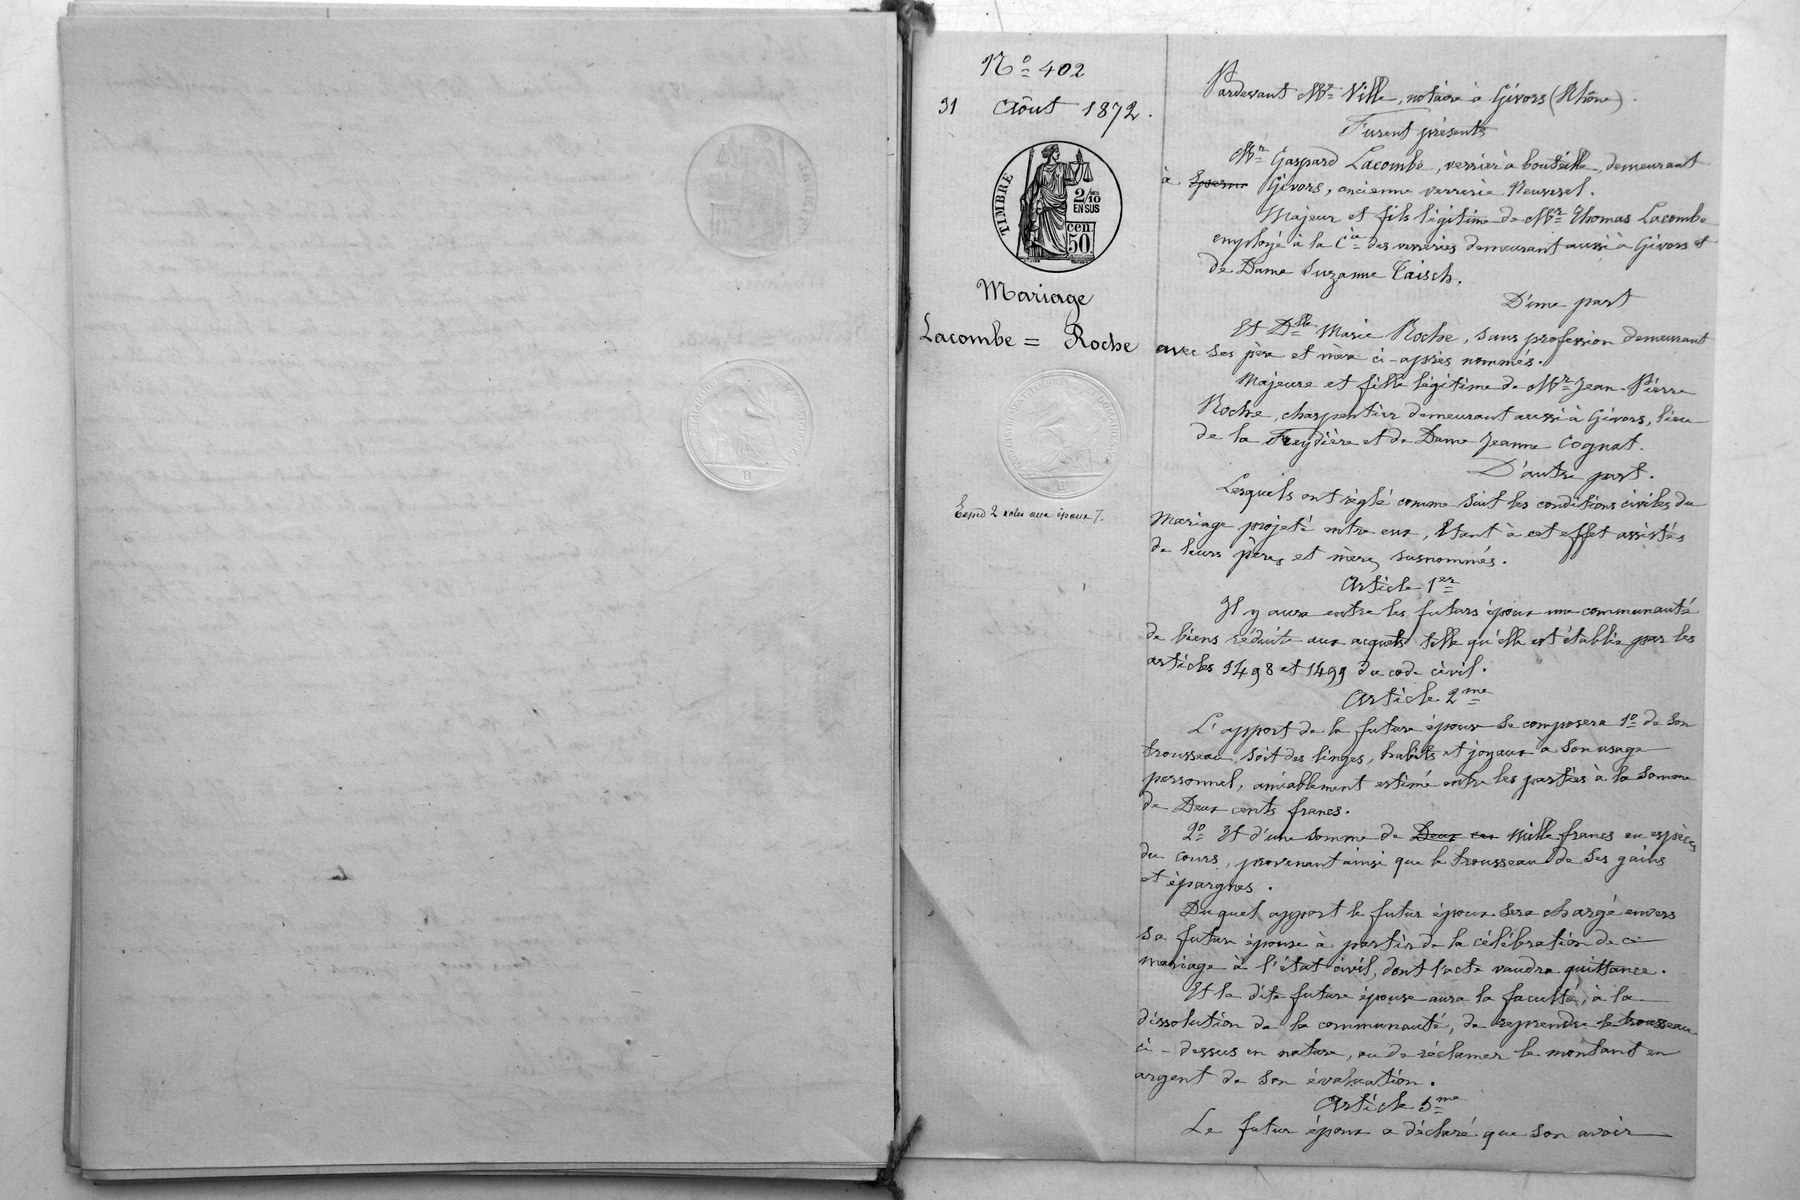 Nº 402
31 Août 1872.
TIMBRE
2/10
EN SUS
50 cen
Mariage
Lacombe = Roche
Pardevant Me Ville, notaire à Givors (Rhône).
Furent présents
Mr Gaspard Lacombe, verrier à bouteille, demeurant
à Givors, ancienne verrerie Neuvesel.
Majeur et fils légitime de Mr Thomas Lacombe
employé à la Cie des verreries demeurant aussi à Givors et
de Dame Suzanne Taisch.
D'une part
Et Dlle Marie Roche, sans profession demeurant
avec ses père et mère ci-après nommés.
Majeure et fille légitime de Mr Jean-Pierre
Roche, charpentier demeurant aussi à Givors, lieu
de la Freydière et de Dame Jeanne Cognat.
D'autre part.
Lesquels ont réglé comme suit les conditions civiles du
mariage projeté entre eux, étant à cet effet assistés
de leurs pères et mères susnommés.
Article 1er
Il y aura entre les futurs époux une communauté
de biens réduite aux acquets telle qu'elle est établie par les
articles 1498 et 1499 du code civil.
Article 2me
L'apport de la future épouse se composera 1º de son
trousseau, soit des linges, habits et joyaux à son usage
personnel, amiablement estimé entre les parties à la somme
de Deux cents francs.
2º Et d'une somme de Deux cen Mille francs en espèces
du cours, provenant ainsi que le trousseau de ses gains
et épargnes.
Duquel apport le futur époux sera chargé envers
sa future épouse à partir de la célébration de ce
mariage à l'état civil, dont l'acte vaudra quittance.
Et la dite future épouse aura la faculté, à la
dissolution de la communauté, de reprendre le trousseau
ci-dessus en nature, ou de réclamer le montant en
argent de son évaluation.
Article 3me
Le futur époux a déclaré que son avoir